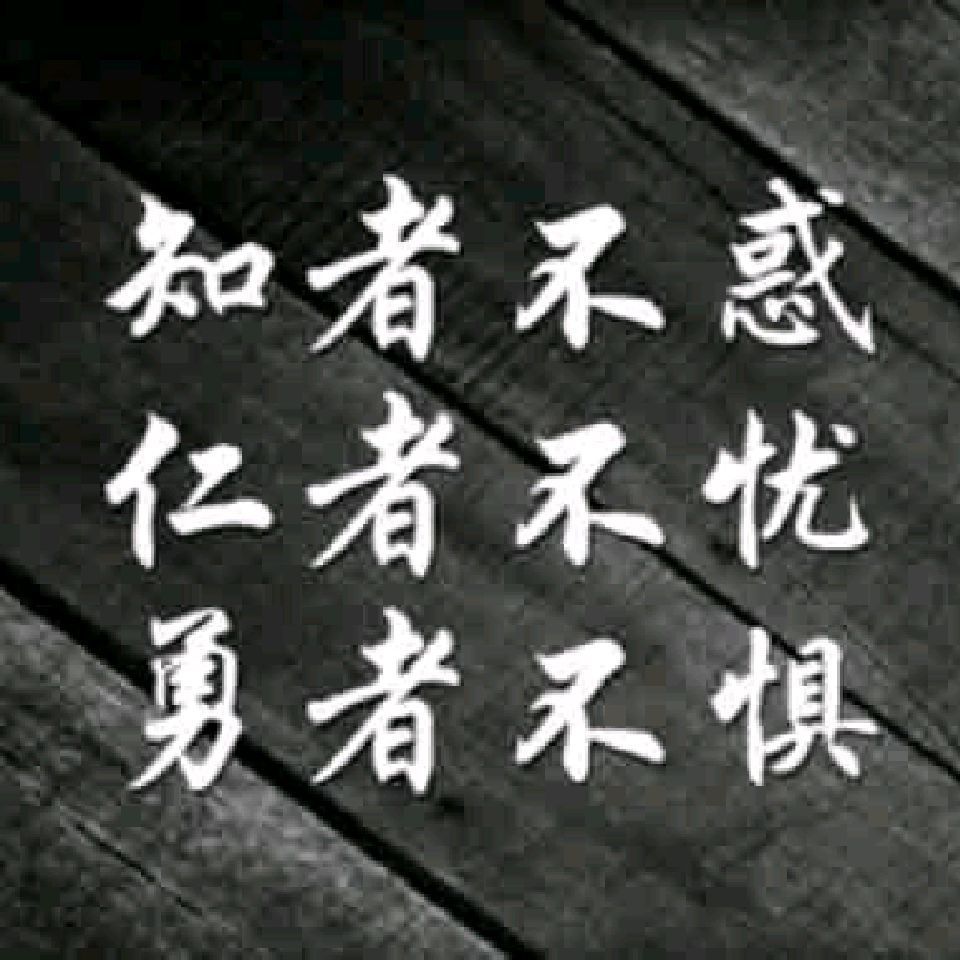 知者不惑
仁者不忧
勇者不惧